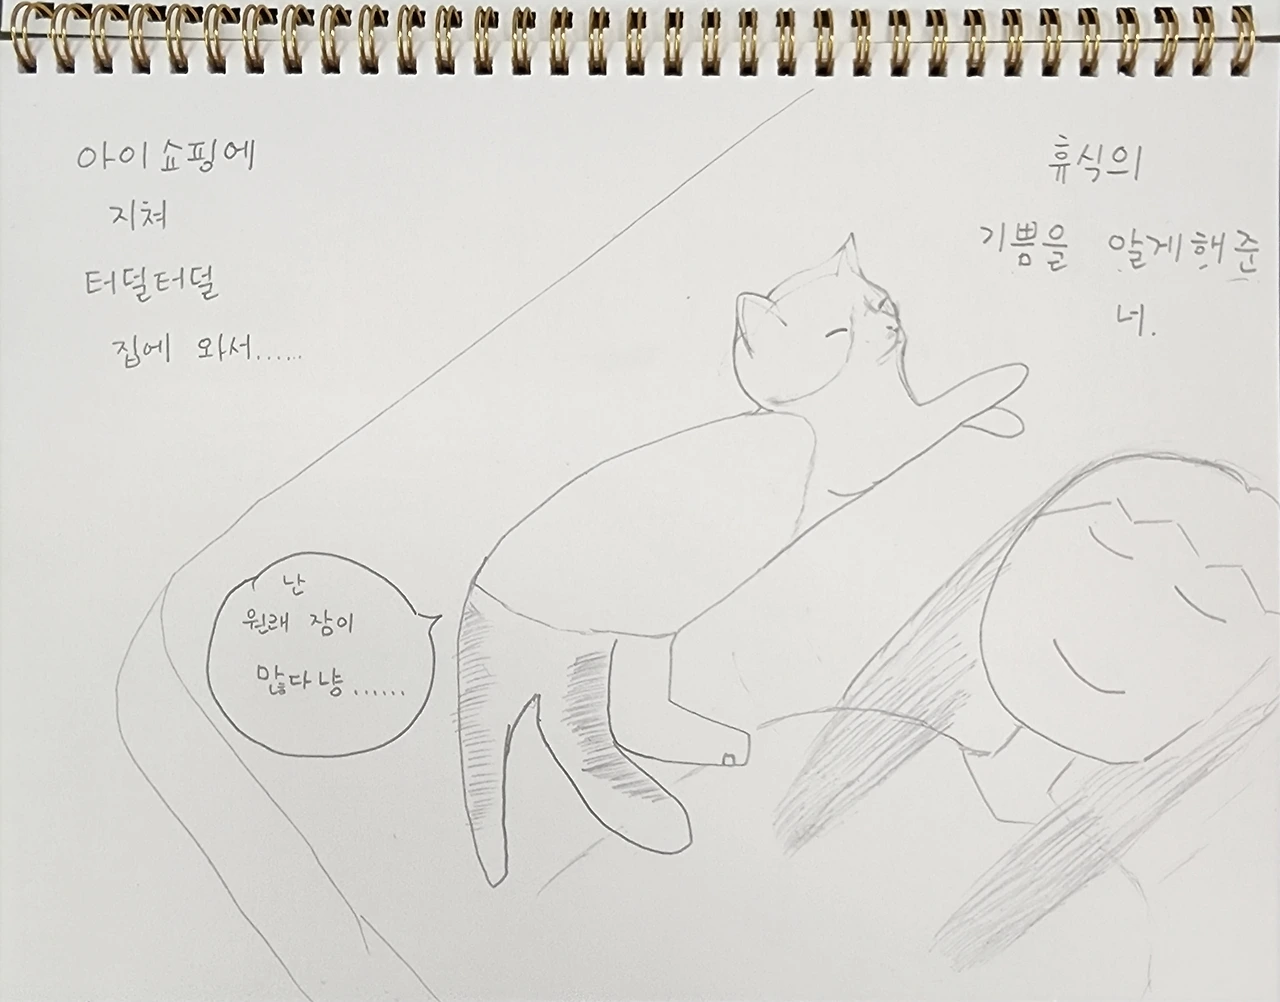 아이쇼핑에
지쳐
터덜터덜
집에 와서......
휴식의
기쁨을 알게해준
너.
난
원래 잠이
많다냥......